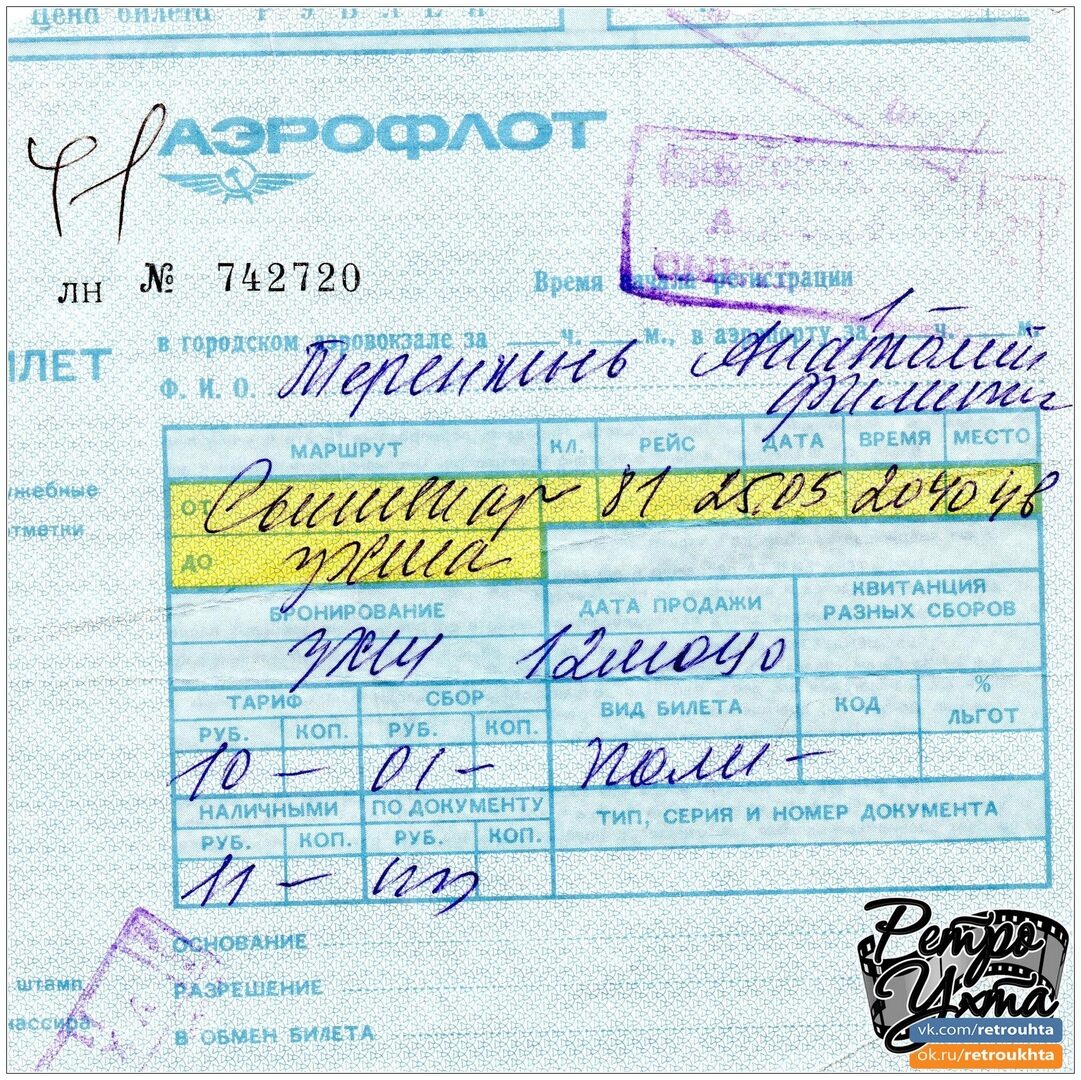 Цена билета РУБЛЕЙ
АЭРОФЛОТ
ЛН № 742720
Время начала регистрации
в городском аэровокзале за ч. м., в аэропорту за 1 ч. — м.
ИЛЕТ
Ф. И. О. Теренкинь Анатолий
МАРШРУТ КЛ. РЕЙС ДАТА ВРЕМЯ МЕСТО
ОТ Сыктывкар 81 25.05 2040
ДО Ухта
жебные
тметки
БРОНИРОВАНИЕ ДАТА ПРОДАЖИ КВИТАНЦИЯ
РАЗНЫХ СБОРОВ
УХТ
ТАРИФ СБОР ВИД БИЛЕТА КОД % ЛЬГОТ
РУБ. КОП. РУБ. КОП.
10 — 01 — полн —
НАЛИЧНЫМИ ПО ДОКУМЕНТУ ТИП, СЕРИЯ И НОМЕР ДОКУМЕНТА
РУБ. КОП. РУБ. КОП.
11 —
ОСНОВАНИЕ
штамп РАЗРЕШЕНИЕ
кассира
В ОБМЕН БИЛЕТА
Ретро
Ухта
vk.com/retrouhta
ok.ru/retroukhta